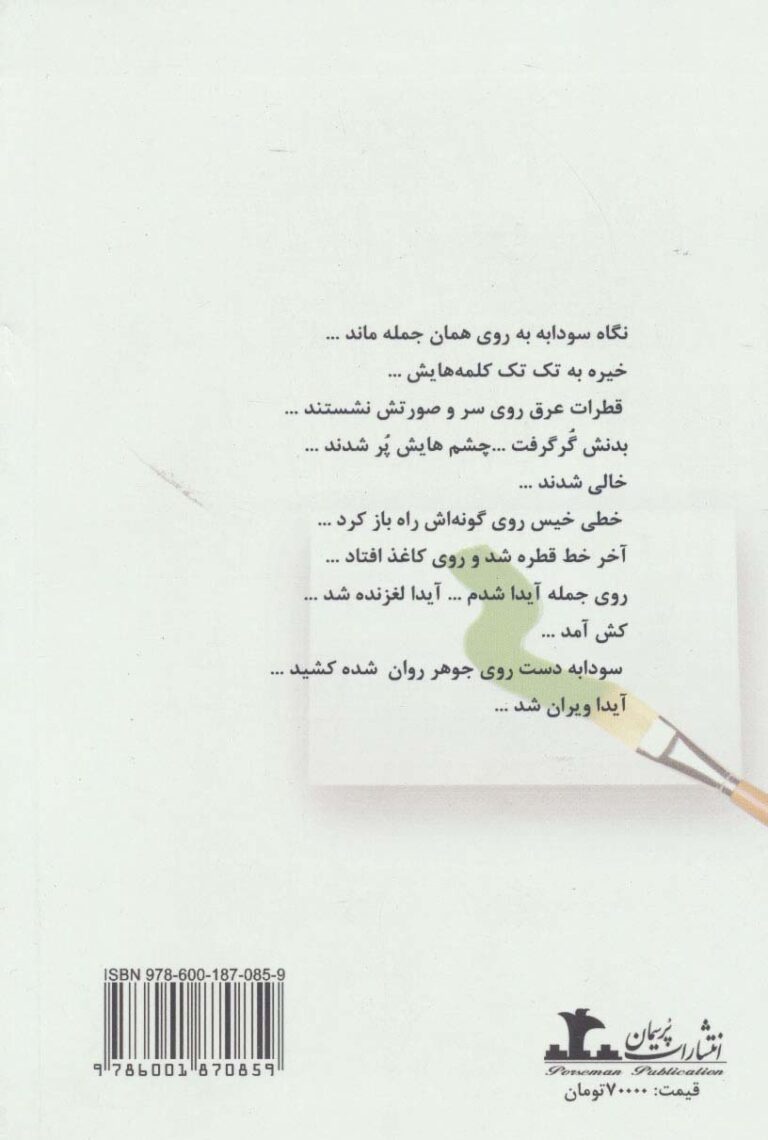 نگاه سودابه به روی همان جمله ماند ...
خیره به تک تک کلمه‌هایش ...
قطرات عرق روی سر و صورتش نشستند ...
بدنش گُرگرفت ...چشم هایش پُر شدند ...
خالی شدند ...
خطی خیس روی گونه‌اش راه باز کرد ...
آخر خط قطره شد و روی کاغذ افتاد ...
روی جمله آیدا شدم ... آیدا لغزنده شد ...
کش آمد ...
سودابه دست روی جوهر روان شده کشید ...
آیدا ویران شد ...
ISBN 978-600-187-085-9
9 786001 870859
انتشارات پُرسمان
Porseman Publication
قیمت: ۷۰۰۰۰تومان